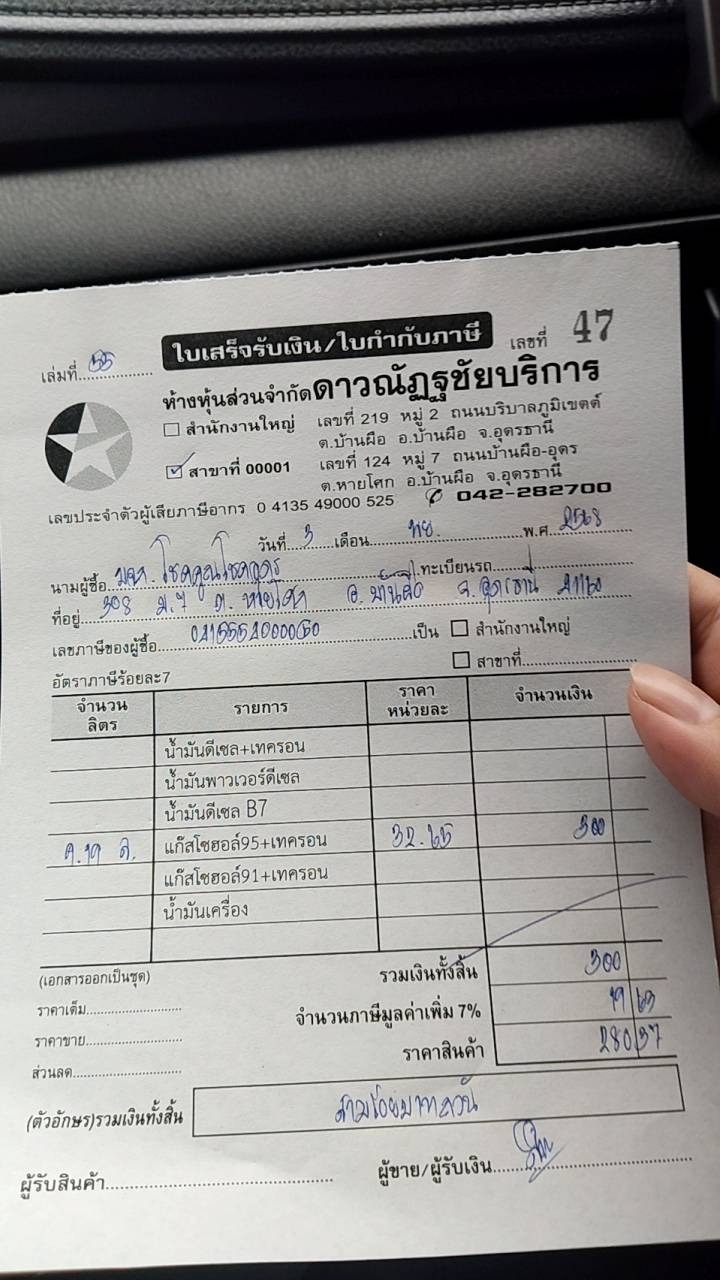 เล่มที่ 55 ใบเสร็จรับเงิน/ใบกำกับภาษี เลขที่ 47
ห้างหุ้นส่วนจำกัดดาวณัฏฐชัยบริการ
สำนักงานใหญ่ เลขที่ 219 หมู่ 2 ถนนบริบาลภูมิเขตต์
ต.บ้านผือ อ.บ้านผือ จ.อุดรธานี
สาขาที่ 00001 เลขที่ 124 หมู่ 7 ถนนบ้านผือ-อุดร
ต.หายโศก อ.บ้านผือ จ.อุดรธานี
เลขประจำตัวผู้เสียภาษีอากร 0 4135 49000 525 042-282700
วันที่ 3 เดือน พย. พ.ศ. 2568
นามผู้ซื้อ โชคคูณโชค ทะเบียนรถ
ที่อยู่ 308 ม.7 ต. หายโศก อ. บ้านผือ จ. อุดรธานี 41160
เลขภาษีของผู้ซื้อ เป็น สำนักงานใหญ่
สาขาที่
อัตราภาษีร้อยละ7
จำนวนลิตร รายการ ราคาหน่วยละ จำนวนเงิน
น้ำมันดีเซล+เทครอน
น้ำมันพาวเวอร์ดีเซล
น้ำมันดีเซล B7
9.19 ล. แก๊สโซฮอล์95+เทครอน 32.65 300
แก๊สโซฮอล์91+เทครอน
น้ำมันเครื่อง
(เอกสารออกเป็นชุด) รวมเงินทั้งสิ้น 300
ราคาเต็ม จำนวนภาษีมูลค่าเพิ่ม 7% 19 63
ราคาขาย ราคาสินค้า 280 37
ส่วนลด
(ตัวอักษร)รวมเงินทั้งสิ้น สามร้อยบาทถ้วน
ผู้รับสินค้า ผู้ขาย/ผู้รับเงิน